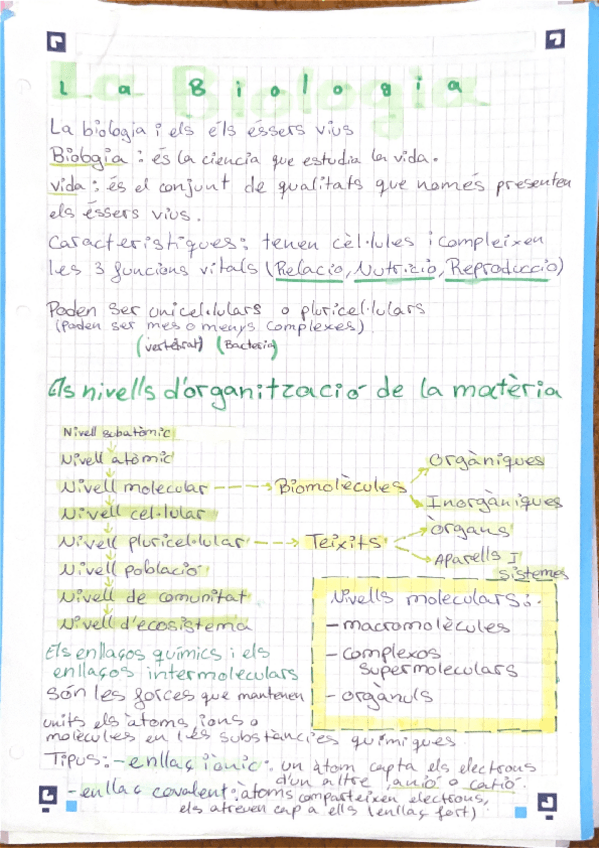 La Biologia
La biologia i els éls éssers vius
Biologia : és la ciencia que estudia la vida.
vida : és el conjunt de qualitats que només presenten
els éssers vius.
Característiques: tenen cèl·lules i compleixen
les 3 funcions vitals (Relacio, Nutricio, Reproduccio)
Poden ser unicel·lulars o pluricel·lulars
(Poden ser mes o menys complexes)
(vertebrat) (Bacteria)
Els nivells d'organització de la matèria
Nivell subatòmic
Nivell atòmic
Nivell molecular → Biomolècules
Orgàniques
Inorgàniques
Nivell cel·lular
Nivell pluricel·lular → Teixits
Òrgans
Aparells I
sistemes
Nivell població
Nivell de comunitat
Nivell d'ecosistema
Nivells moleculars:
- macromolècules
- complexos
supermoleculars
- orgànuls
Els enllaços químics i els
enllaços intermoleculars
són les forces que mantenen
units els àtoms, ions o
molècules en les substàncies químiques
Tipus: - enllaç iònic: un àtom capta els electrons
d'un altre, anió o catió.
- enllaç covalent: àtoms comparteixen electrons,
els atreuen cap a ells (enllaç fort)